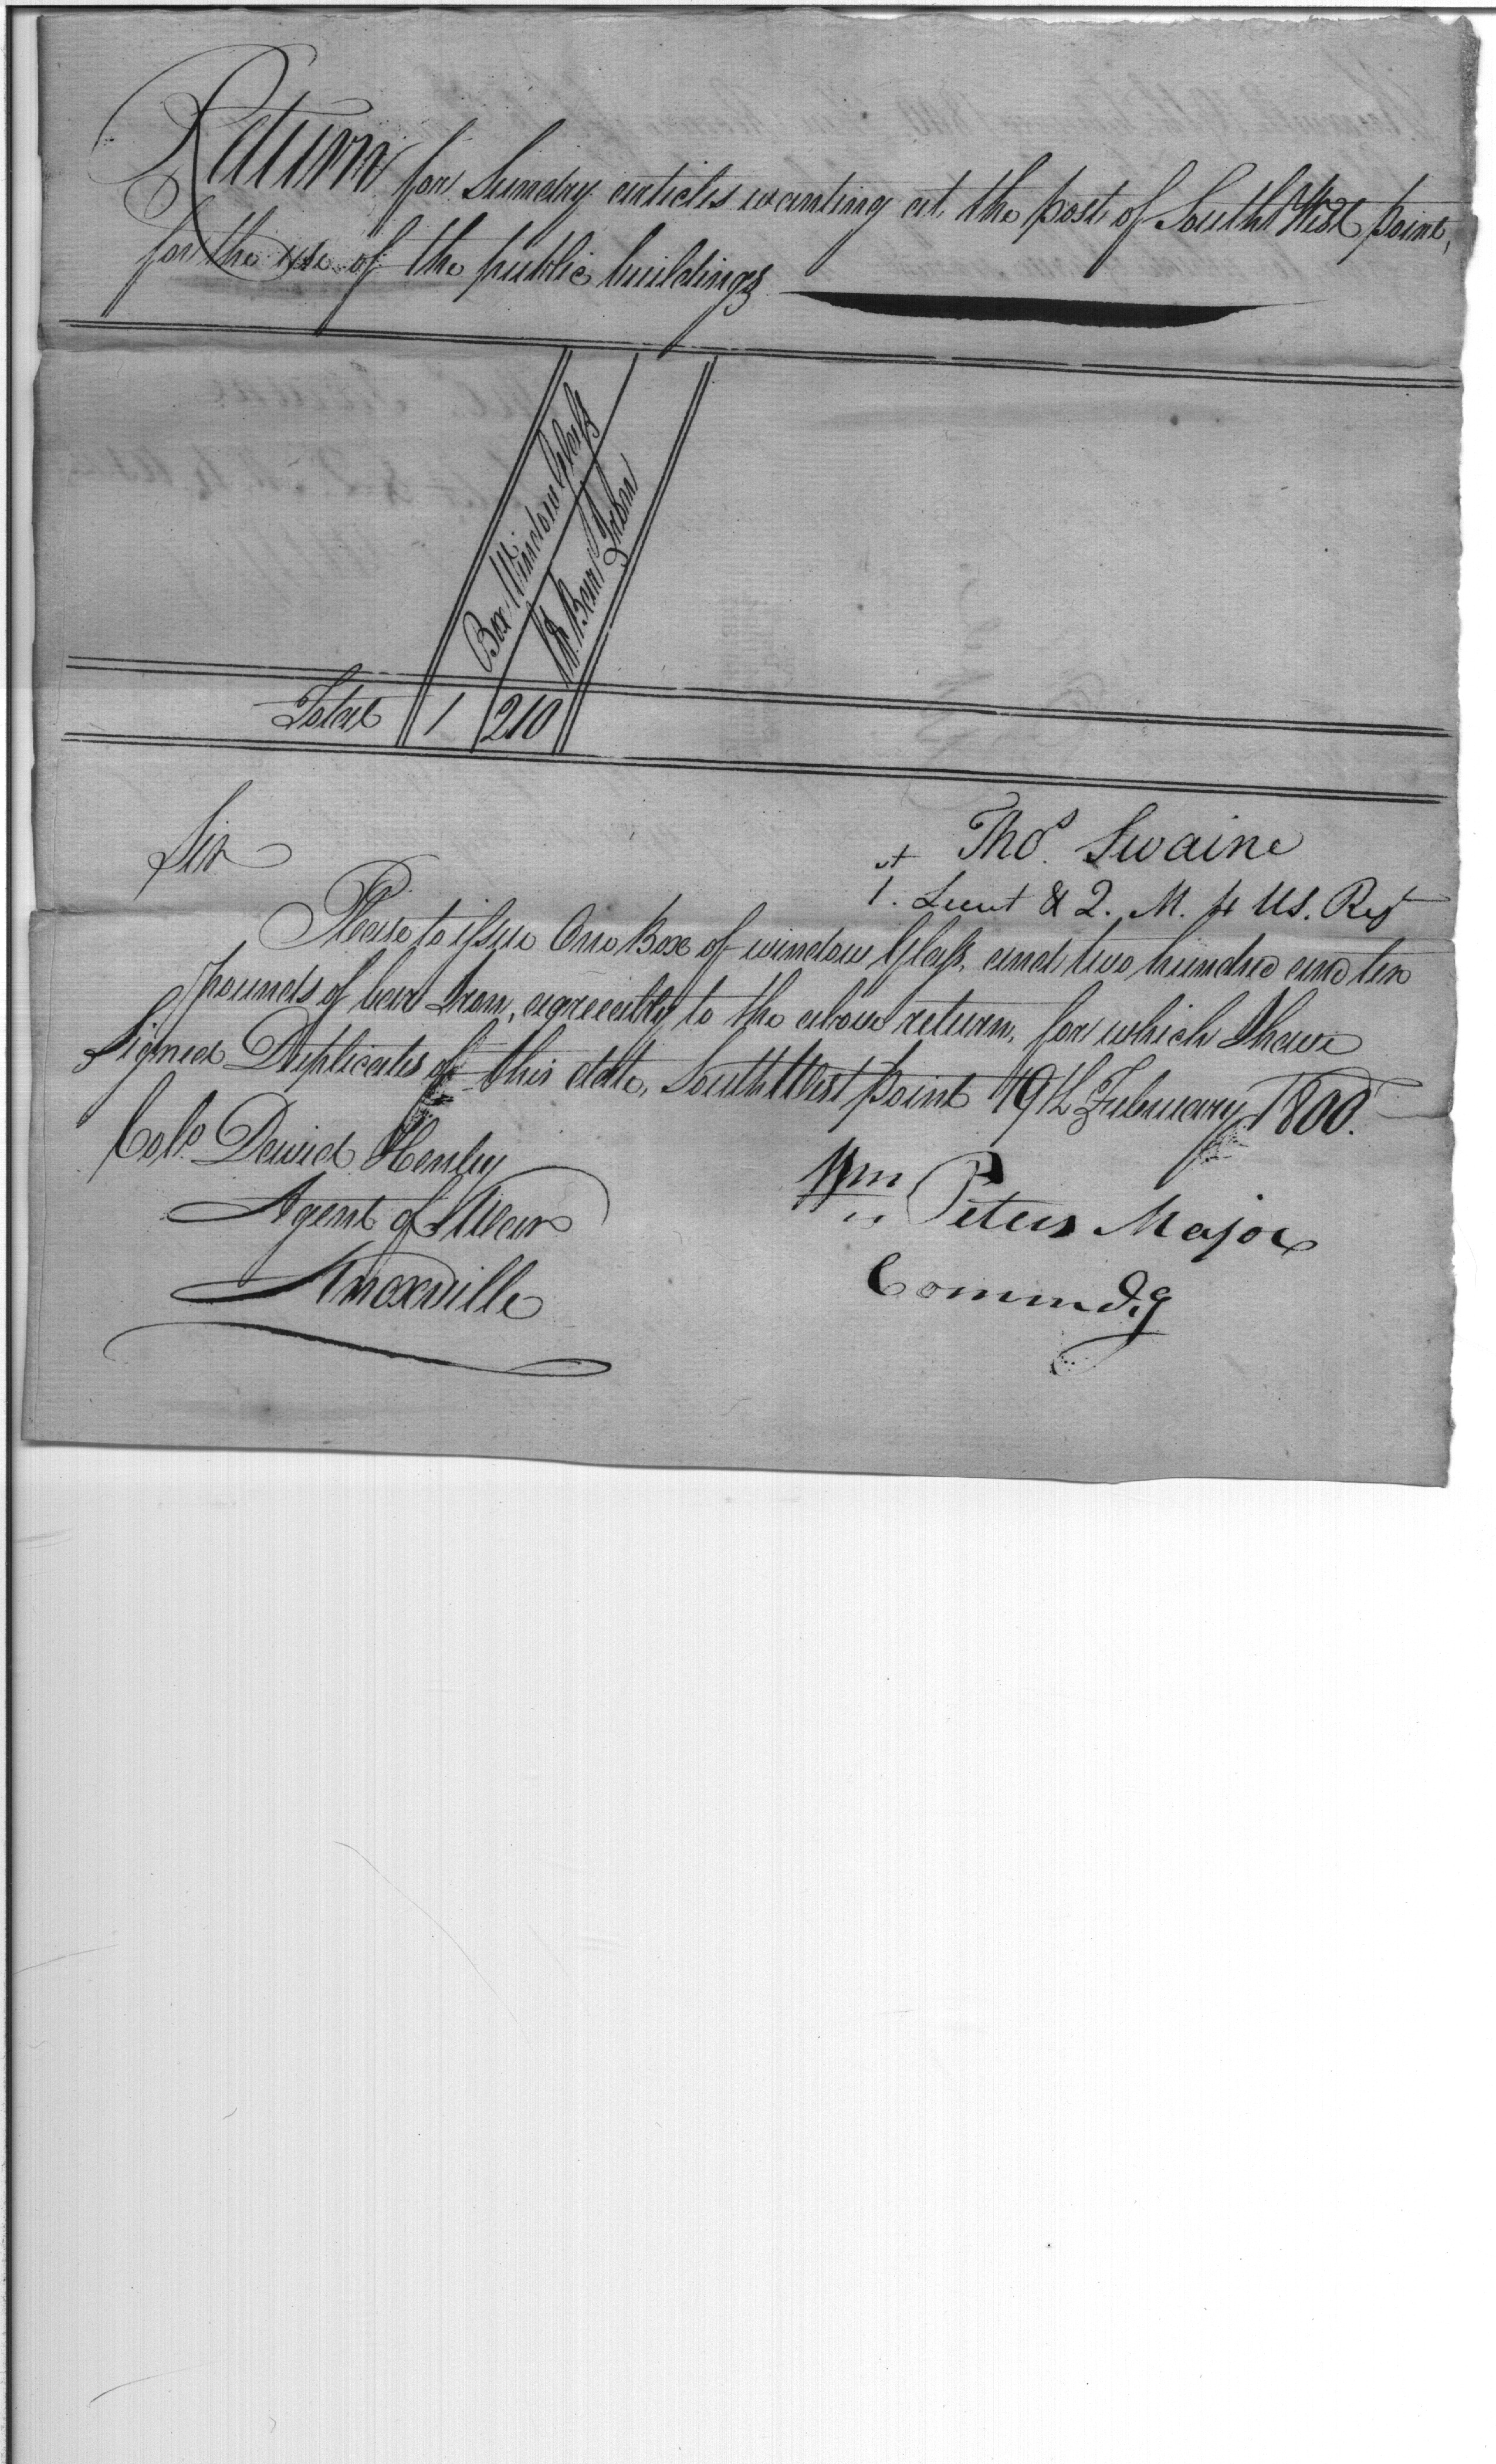 Return for Sundry articles wanting at the post of South West point,
for the use of the public buildings
Box Window Glass
lb. Barr Iron
Total 1 210
Thos. Swaine
1st. Lieut & Q. M. 4 US. Regt
Sir
Please to issue One Box of window Glass, and two hundred and ten
pounds of bar Iron, agreeably to the above return, for which I have
Signed Duplicates of this date, South West point 19th February 1800.
Colo. David Henley
Agent of War
Knoxville
Wm Peters Major
Commdg